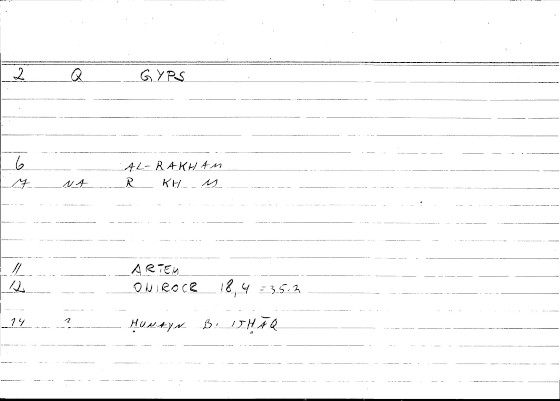 2 Q GYPS
6 AL-RAKHAM
7 NA R KH M
11 ARTEM
12 ONIROCR 18,4 = 35.2
14 ? ḤUNAYN B. ISḤĀQ